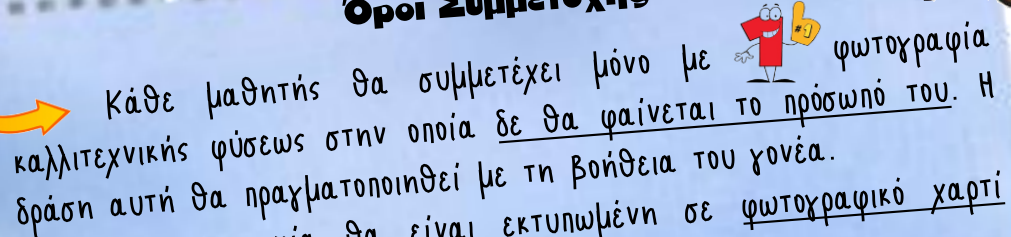 Όροι Συμμετοχής
Κάθε μαθητής θα συμμετέχει μόνο με 1 #1 φωτογραφία
καλλιτεχνικής φύσεως στην οποία δε θα φαίνεται το πρόσωπό του. Η
δράση αυτή θα πραγματοποιηθεί με τη βοήθεια του γονέα.
θα είναι εκτυπωμένη σε φωτογραφικό χαρτί